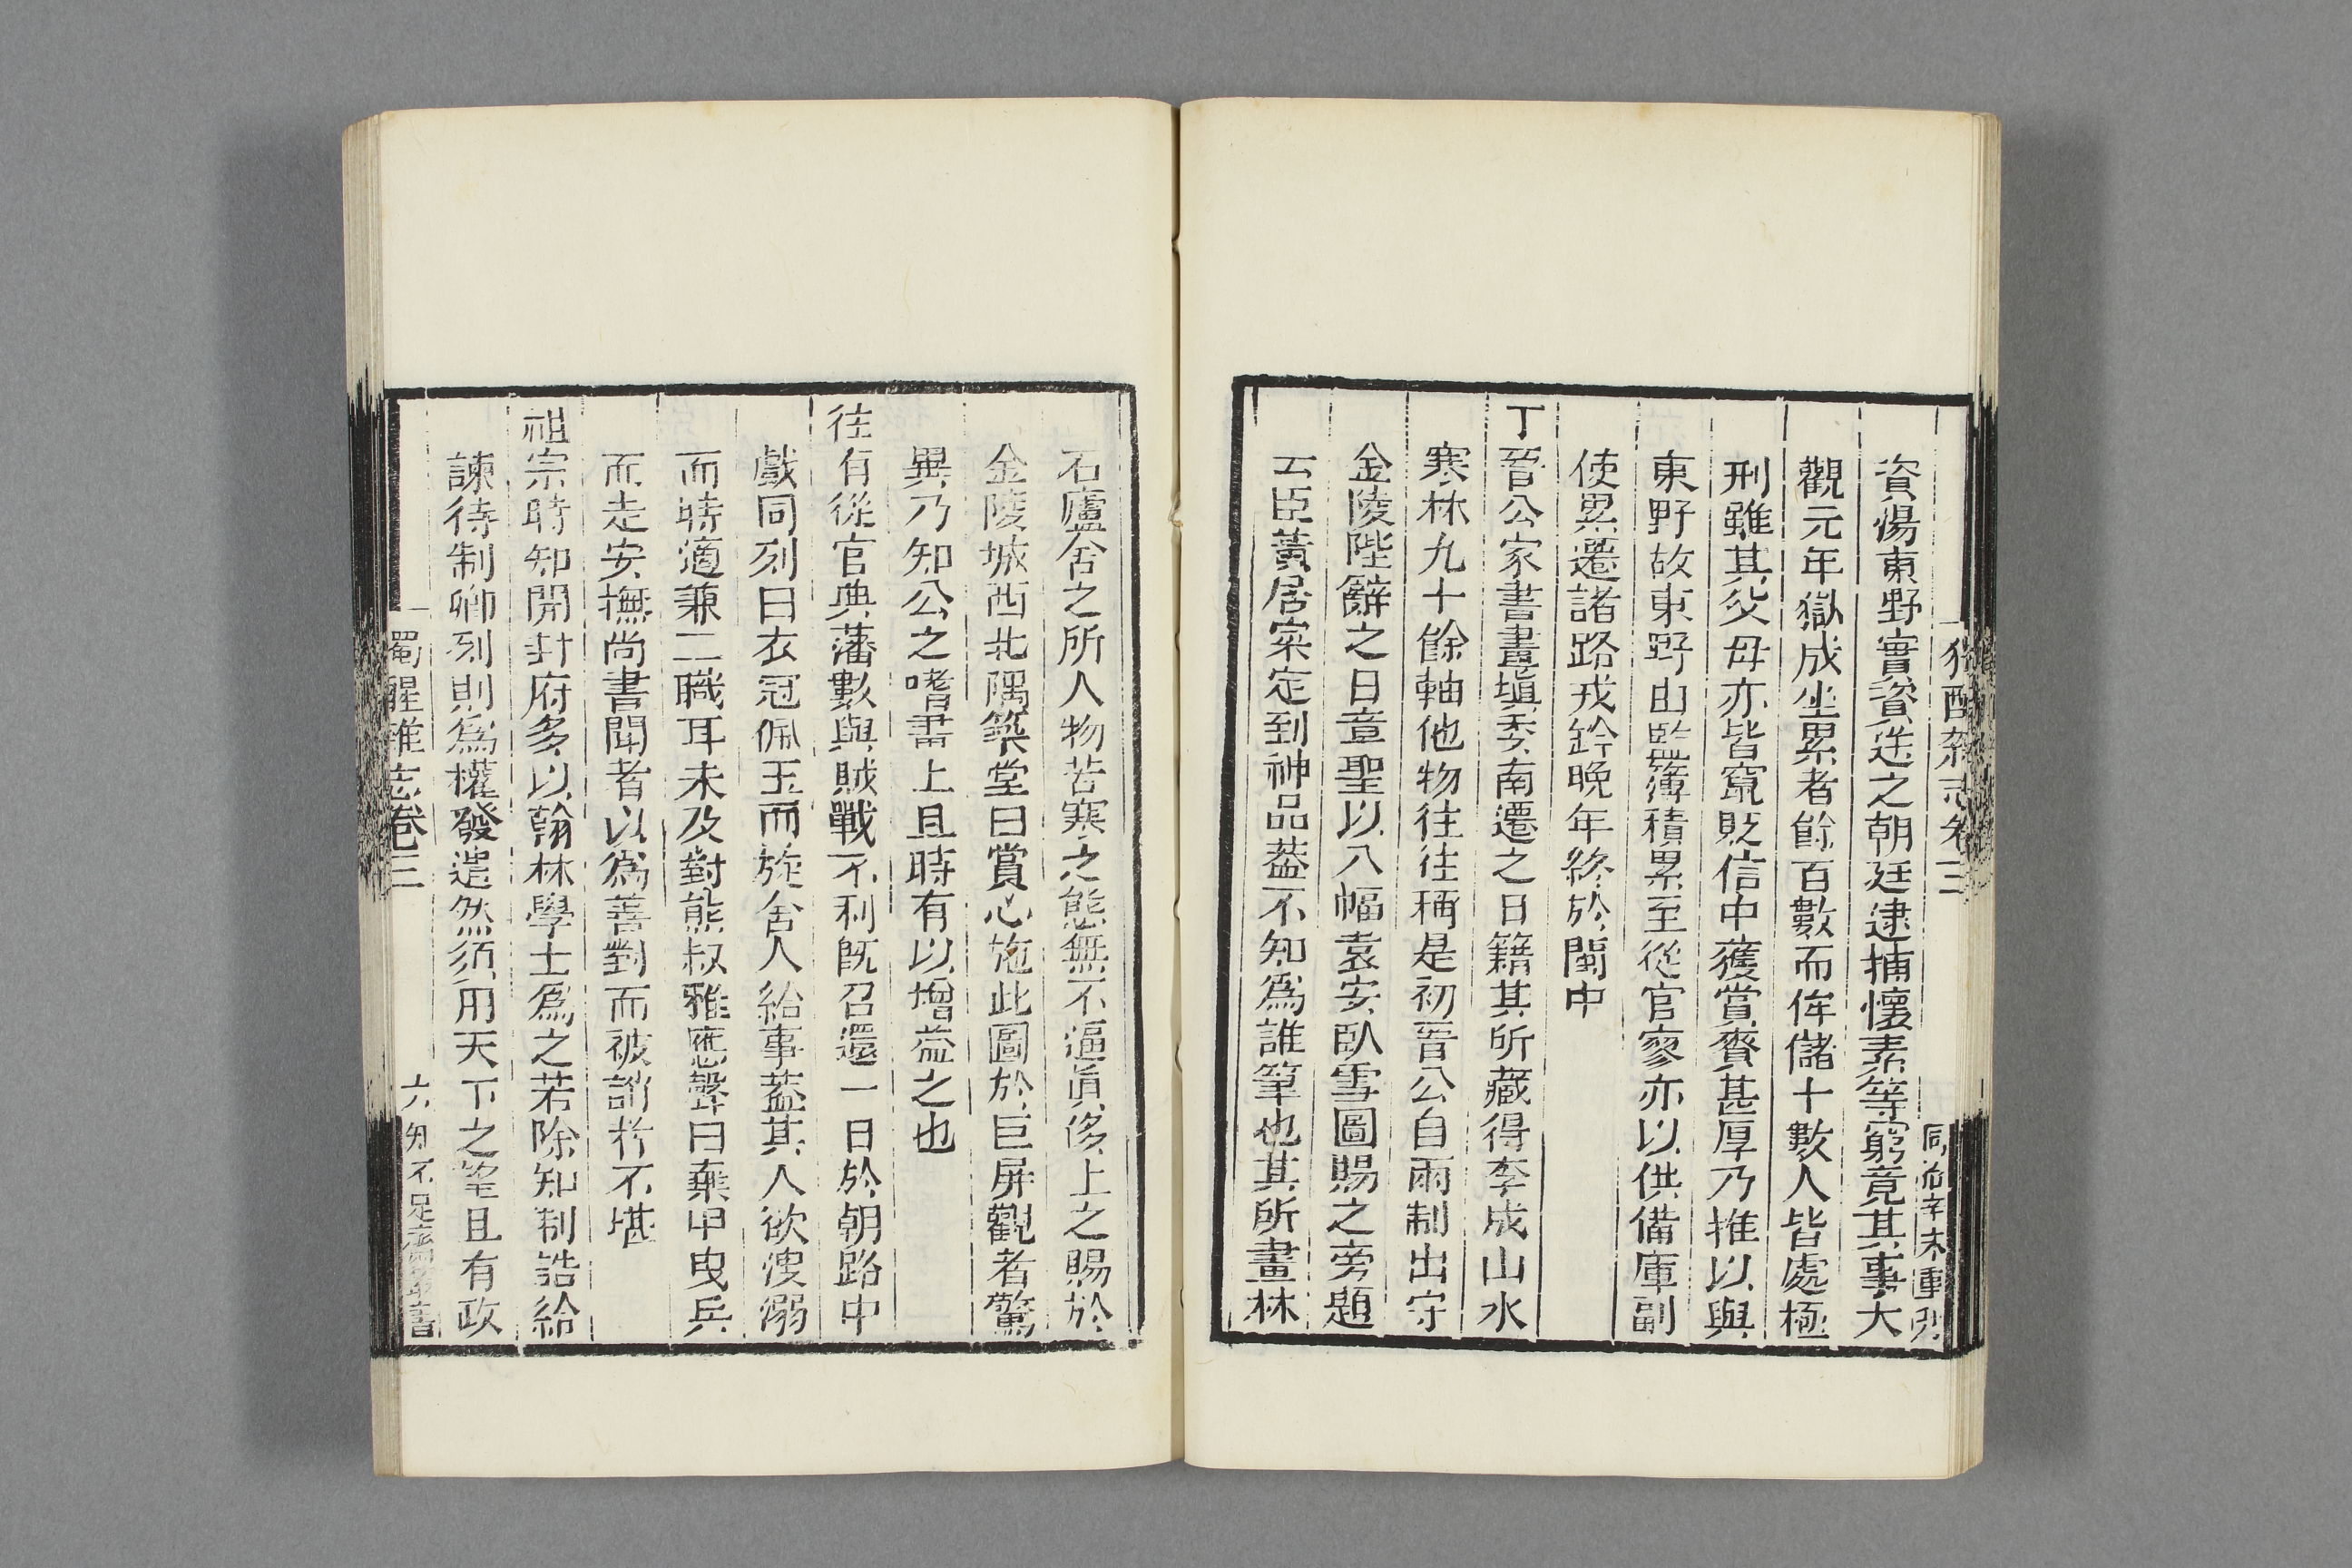 獨醒雜志卷三
同治辛未重刊
資湯東野實資送之朝廷逮捕懷素等窮竟其事大
觀元年獄成坐累者餘百數而侔儲十數人皆處極
刑雖其父母亦皆竄貶信中獲賞賚甚厚乃推以與
東野故東野由監簿積累至從官寥亦以供備庫副
使累遷諸路戎鈐晚年終於閩中
丁晉公家書畫塡委南遷之日籍其所藏得李成山水
寒林九十餘軸他物往往稱是初晉公自兩制出守
金陵陛辭之日章聖以八幅袁安臥雪圖賜之旁題
云臣黃居寀定到神品葢不知爲誰筆也其所畫林
石廬舍之所人物苦寒之態無不逼眞侈上之賜於
金陵城西北隅築堂曰賞心施此圖於巨屏觀者驚
異乃知公之嗜畫上且時有以增益之也
往有從官典藩數與賊戰不利旣召還一日於朝路中
戲同列曰衣冠佩玉而旋舍人給事葢其人欲溲溺
而時適兼二職耳未及對熊叔雅應聲曰棄甲曳兵
而走安撫尚書聞者以爲善對而被誚者不堪
祖宗時知開封府多以翰林學士爲之若除知制誥給
諫待制卿列則爲權發遣然須用天下之望且有政
獨醒雜志卷三
六 知不足齋叢書